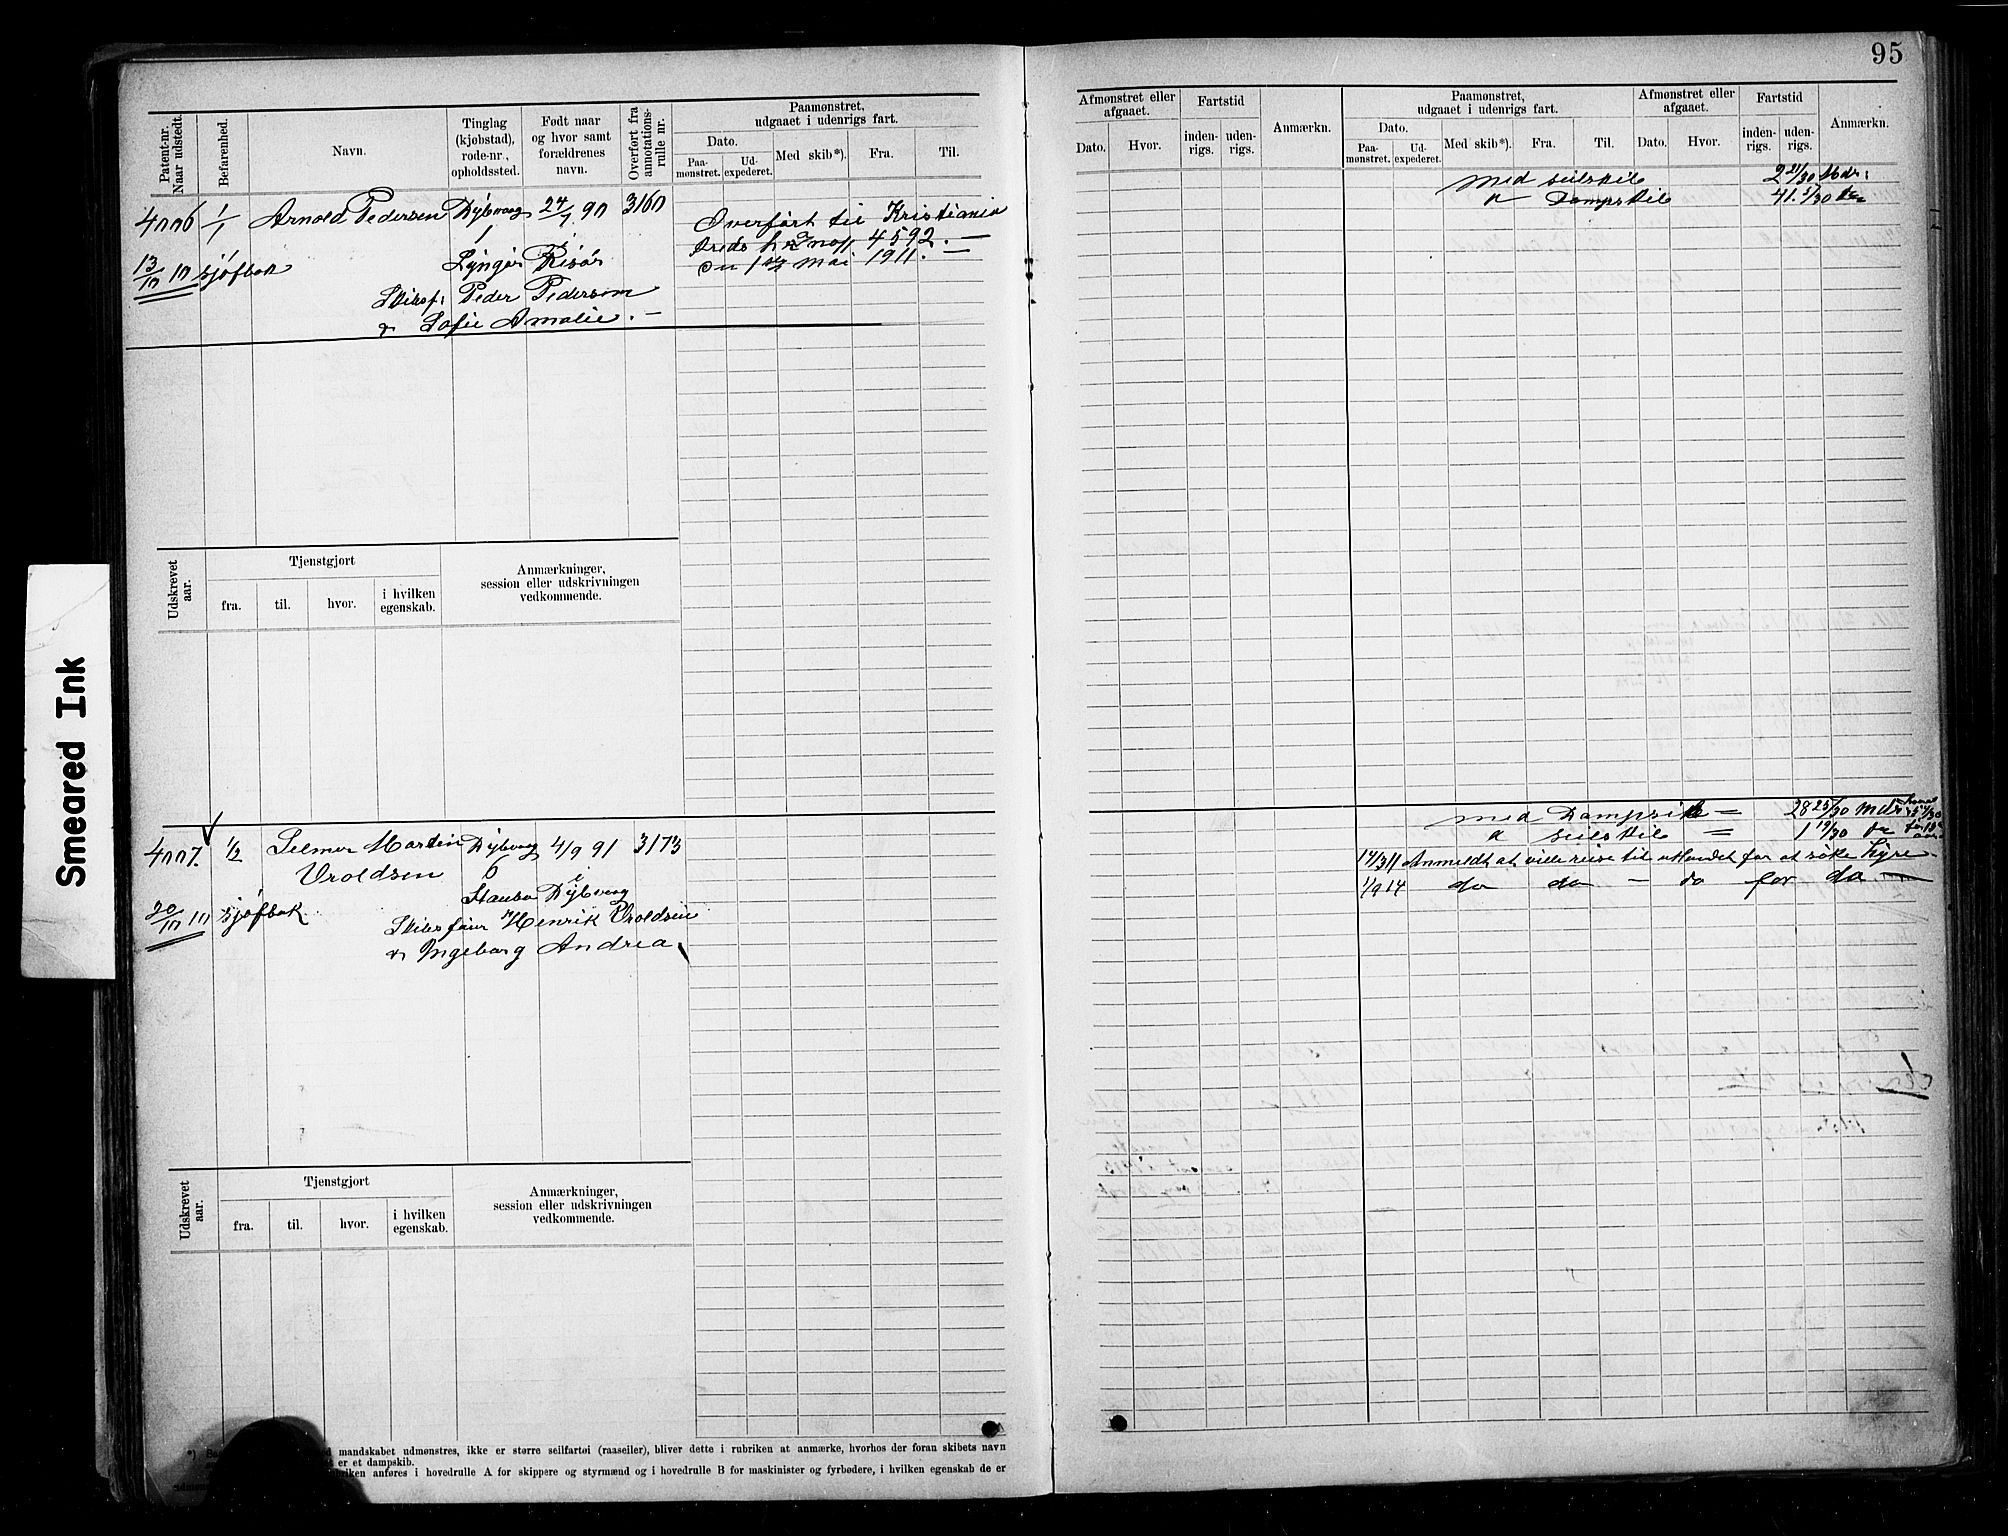 95
Patent-nr.
Naar udstedt.
Befarenhed.
Navn.
Tinglag
(kjøbstad),
rode-nr.,
opholdssted.
Født naar
og hvor samt
forældrenes
navn.
Overført fra
annotations-
rulle nr.
Paamønstret,
udgaaet i udenrigs fart.
Dato.
Paa-
mønstret.
Ud-
expederet.
Med skib*).
Fra.
Til.
Afmønstret eller
afgaaet.
Dato.
Hvor.
Fartstid
inden-
rigs.
uden-
rigs.
Anmærkn.
Paamønstret,
udgaaet i udenrigs fart.
Dato.
Paa-
mønstret.
Ud-
expederet.
Med skib*).
Fra.
Til.
Afmønstret eller
afgaaet.
Dato.
Hvor.
Fartstid
inden-
rigs.
uden-
rigs.
Anmærkn.
4006 1/1 Arnold Pedersen Dybvaag 24/7 90 3160
1
13/10 10 sjøfbok Lyngør Risør
Skibsf: Peder Pedersen
& Sofie Amalie. —
Overført til Kristiania
kreds 4592. —
den 1ste Mai 1911. —
med seilskib 2 21/30 Mdr:
" Dampskib 41. 5/30
Udskrevet
aar.
Tjenstgjort
fra.
til.
hvor.
i hvilken
egenskab.
Anmærkninger,
session eller udskrivningen
vedkommende.
4007. 1/2 Selmer Martin Dybvaag 4/9 91 3173
Uroldsen 6
Staubø Dybvaag
20/10 10 sjøfbok Skibsfører Henrik Uroldsen
& Ingeborg Andrea.
med Dampskib = 28 25/30 Mdr
" seilskib = 1 19/30
14/3 11 Anmeldt at ville reise til utlandet for at søke hyre
1/9 14 do do — do for do —
Udskrevet
aar.
Tjenstgjort
fra.
til.
hvor.
i hvilken
egenskab.
Anmærkninger,
session eller udskrivningen
vedkommende.
mandskabet udmønstres, ikke er større seilfartøi (raaseiler), bliver dette i rubriken at anmærke, hvorhos der foran skibets navn
er et dampskib.
anføres i hovedrulle A for skippere og styrmænd og i hovedrulle B for maskinister og fyrbødere, i hvilken egenskab de er
Smeared Ink